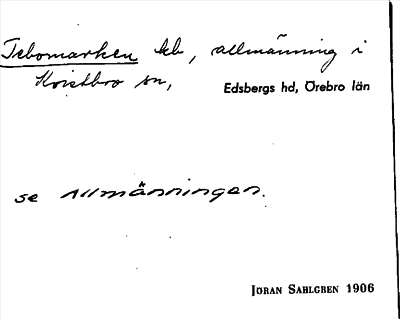 Tebomarken kb, allmänning i
Kvistbro sn,
Edsbergs hd, Örebro län
se Allmänningen.
JÖRAN SAHLGREN 1906